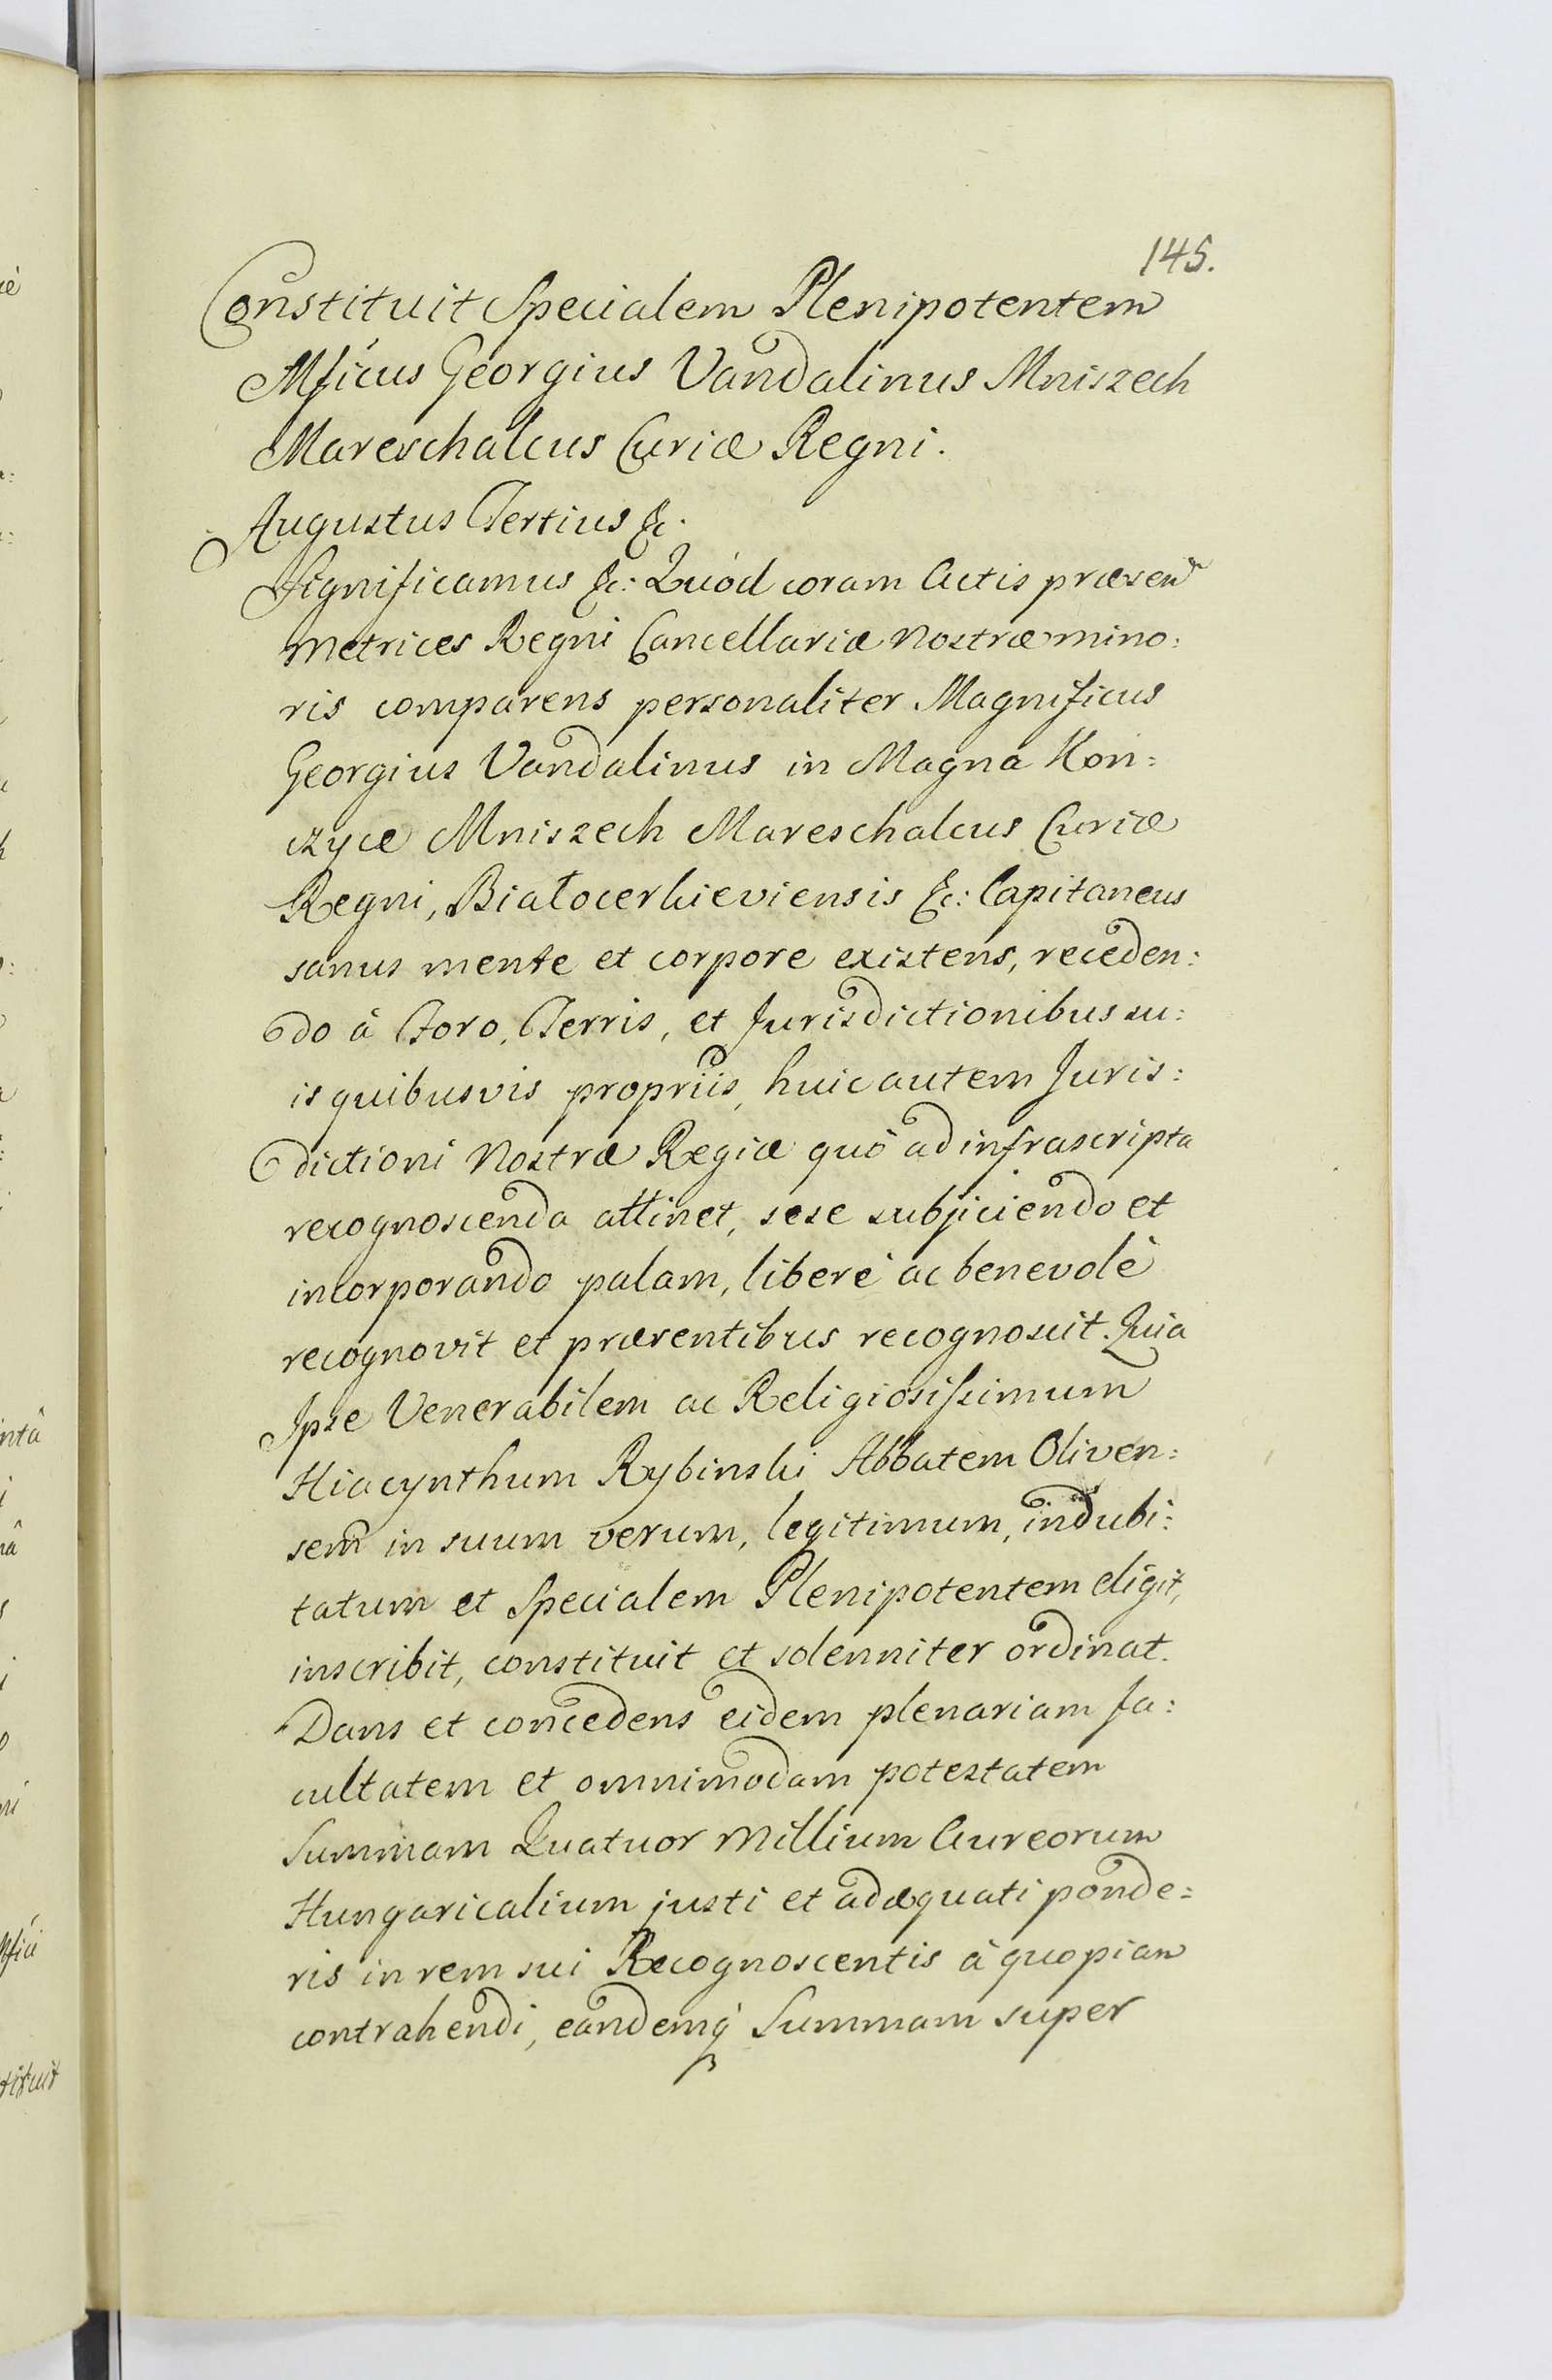 145.
Constituit Specialem Plenipotentem
Mficus Georgius Vandalinus Mniszech
Mareschalcus Curiæ Regni.
Augustus Tertius &c.
Significamus &c: Quód coram Actis præsen
Metrices Regni Cancellariæ Nostræ mino:
ris comparens personaliter Magnificus
Georgius Vandalinus in Magna Kon:
czyce Mniszech Mareschalcus Curiæ
Regni, Białocerkieviensis &c: Capitaneus
sanus mente et corpore existens, receden:
do à Foro, Terris, et Jurisdictionibus su:
is quibusvis propriis, huic autem Juris:
dictioni Nostræ Regiæ quò ad infrascripta
recognoscenda attinet, sese subjiciendo et
incorporando palam, liberè ac benevolè
recognovit et præsentibus recognoscit. Quia
Ipse Venerabilem ac Religiosissimum
Hiacynthum Rybinski Abbatem Oliven:
sem in suum verum, legitimum, indubi:
tatum et Specialem Plenipotentem eligit,
inscribit, constituit et solenniter ordinat.
Dans et concedens eidem plenariam fa:
cultatem et omnimodam potestatem
Summam Quatuor Millium Aureorum
Hungaricalium justi et adæquati ponde=
ris in rem sui Recognoscentis à quopiam
contrahendi, eandemq Summam super